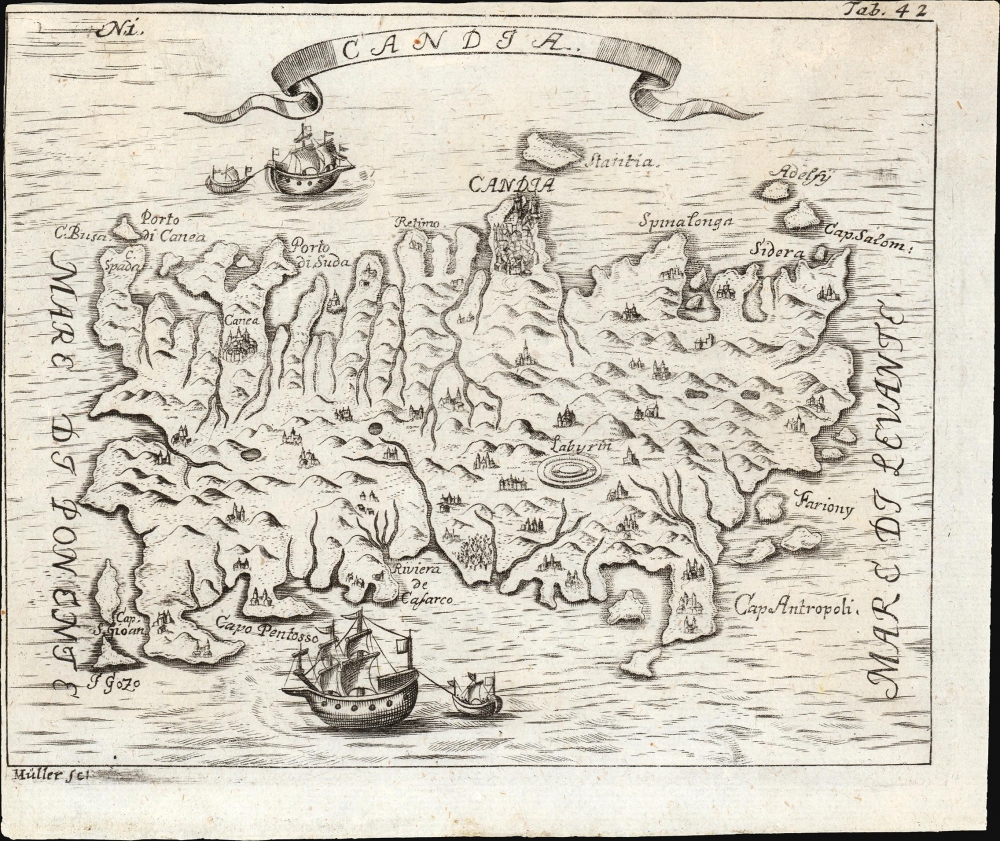 Tab. 42
Ni.
CANDIA.
Stantia.
CANDIA
Adelfy
Porto
di Canea
C. Busa.
Retimo
Spinalonga
Cap. Salom:
C.
Spada
Porto
di Suda
Sidera
Canea
MARE DI PONENTE
MARE DI LEVANTE.
Labyrin
Fariony
Riviera
de
Casarco
Cap.
S. Gioan
Capo Pentosso
Cap Antropoli.
I Gozo
Müller sc: